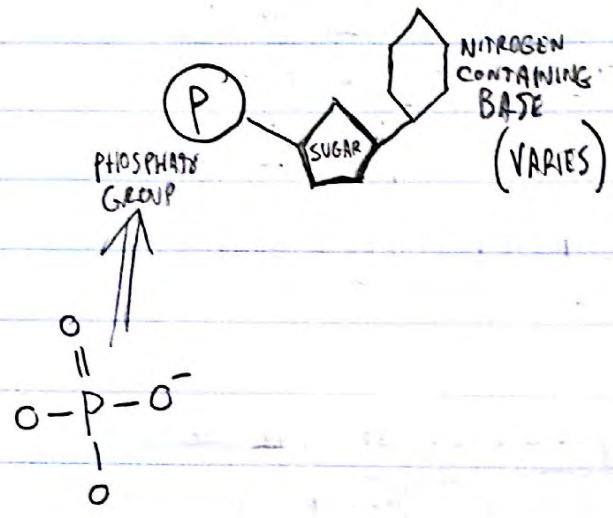 P
SUGAR
NITROGEN
CONTAINING
BASE
(VARIES)
PHOSPHATE
GROUP
O
||
O-P-O⁻
|
O